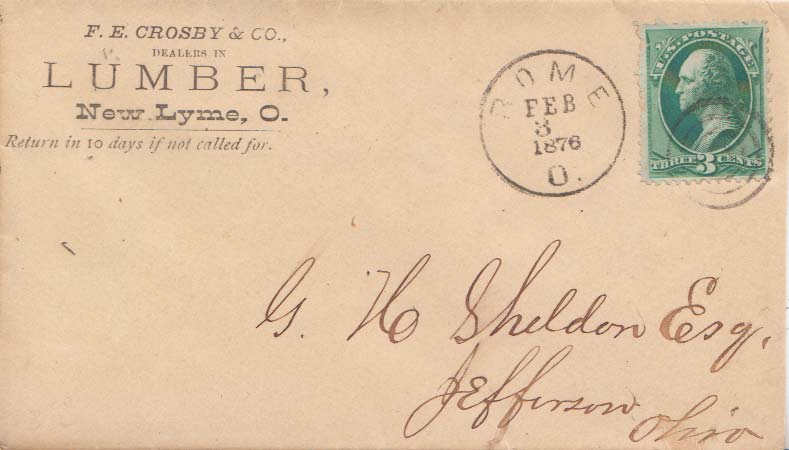 F. E. CROSBY & CO.,
DEALERS IN
LUMBER,
New Lyme, O.
Return in 10 days if not called for.
ROME
FEB
3
1876
O.
U.S. POSTAGE
THREE 3 CENTS
G. H Sheldon Esq,
Jefferson
Ohio